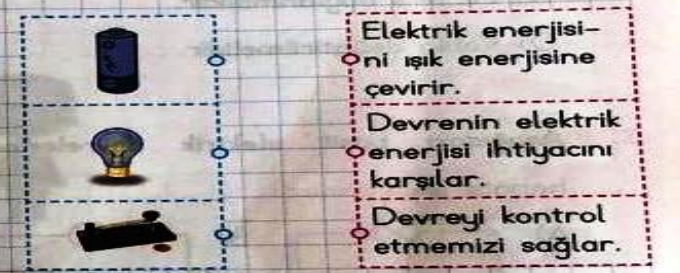 Elektrik enerjisi-
ni ışık enerjisine
çevirir.
Devrenin elektrik
enerjisi ihtiyacını
karşılar.
Devreyi kontrol
etmemizi sağlar.